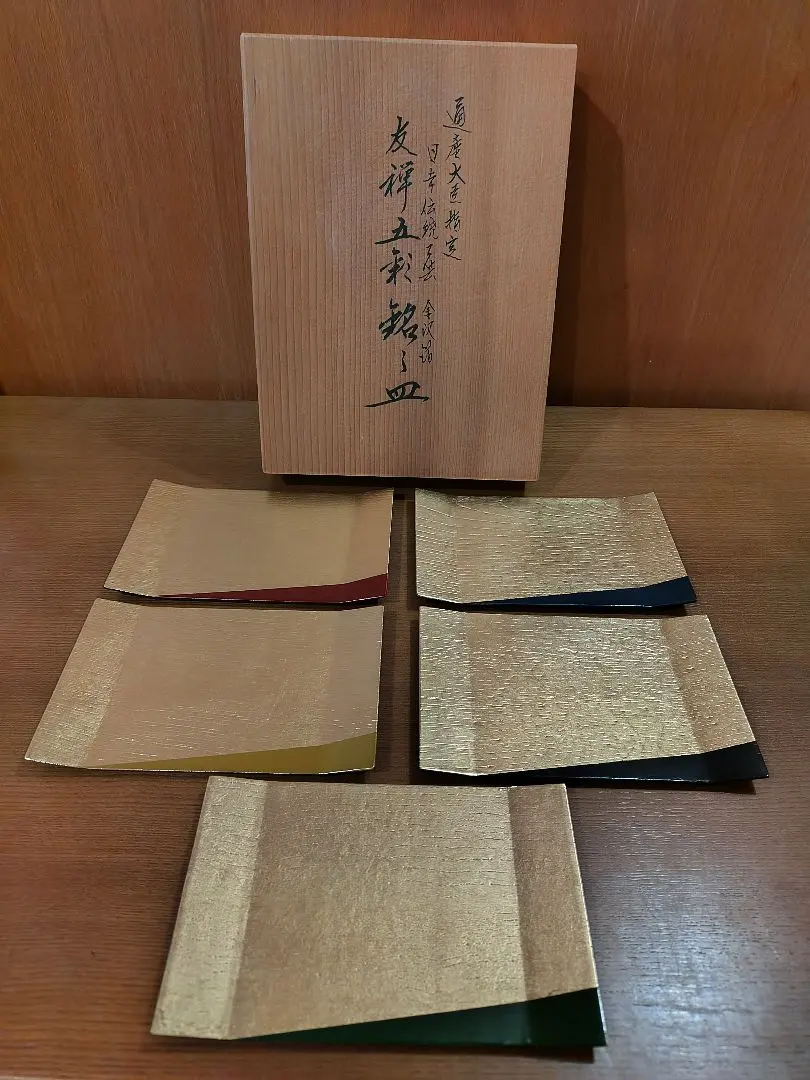 通産大臣指定
日本伝統工芸 金沢箔
友禅五彩銘々皿